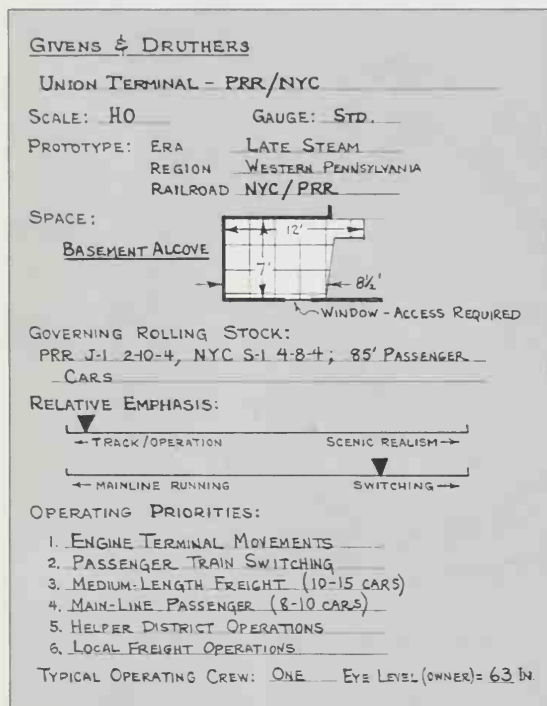 GIVENS & DRUTHERS
UNION TERMINAL - PRR/NYC
SCALE: HO GAUGE: STD.
PROTOTYPE: ERA LATE STEAM
REGION WESTERN PENNSYLVANIA
RAILROAD NYC/PRR
SPACE:
12'
BASEMENT ALCOVE
7'
8½'
WINDOW - ACCESS REQUIRED
GOVERNING ROLLING STOCK:
PRR J-1 2-10-4, NYC S-1 4-8-4; 85' PASSENGER
CARS
RELATIVE EMPHASIS:
←TRACK/OPERATION SCENIC REALISM→
←MAINLINE RUNNING SWITCHING→
OPERATING PRIORITIES:
1. ENGINE TERMINAL MOVEMENTS
2. PASSENGER TRAIN SWITCHING
3. MEDIUM-LENGTH FREIGHT (10-15 CARS)
4. MAIN-LINE PASSENGER (8-10 CARS)
5. HELPER DISTRICT OPERATIONS
6. LOCAL FREIGHT OPERATIONS
TYPICAL OPERATING CREW: ONE EYE LEVEL (OWNER)= 63 IN.